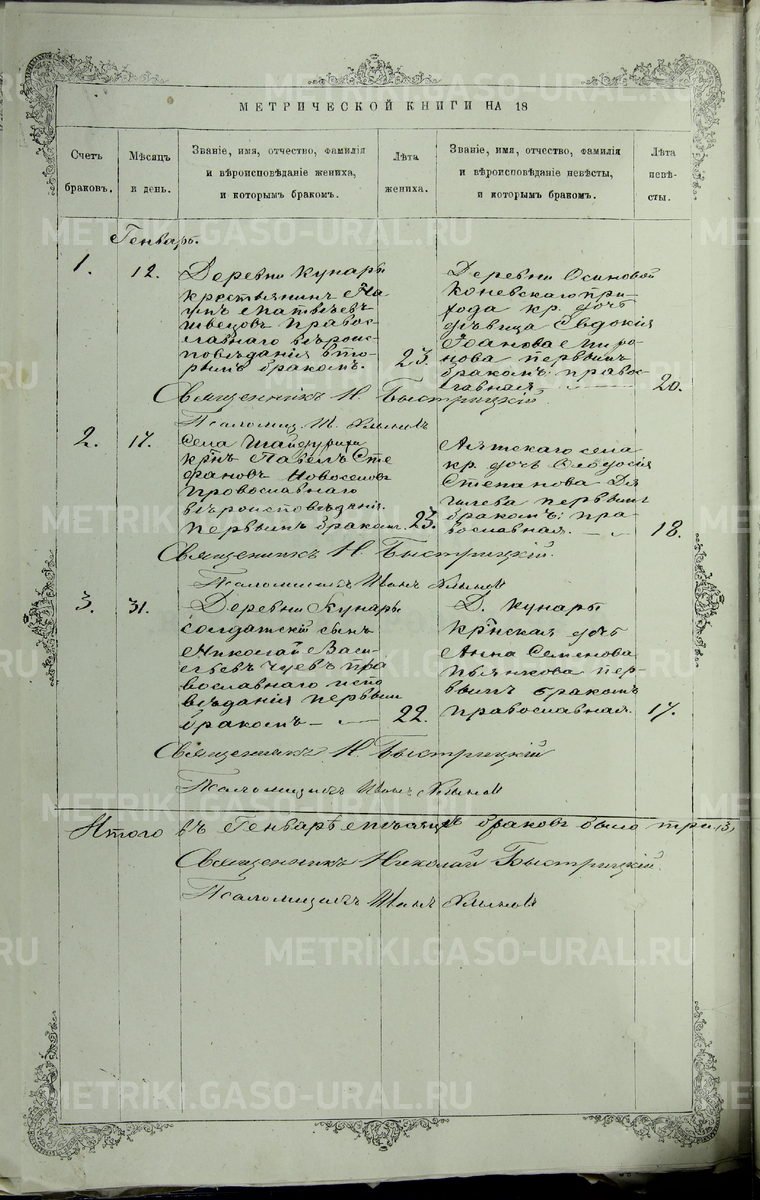 МЕТРИЧЕСКОЙ КНИГИ НА 18
Счетъ браковъ.
Мѣсяцъ и день.
Званіе, имя, отчество, фамилія
и вѣроисповѣданіе жениха,
и которымъ бракомъ.
Лѣта жениха.
Званіе, имя, отчество, фамилія
и вѣроисповѣданіе невѣсты,
и которымъ бракомъ.
Лѣта невѣсты.
Генварь.
1.
12.
Деревни Кунары
крестьянинъ
Матвѣевъ
Швецовъ правос-
лавнаго вѣроис-
повѣданія вто-
рымъ бракомъ.
23.
Деревни Осиновой
Коневскаго при-
хода кр. дочь
дѣвица Евдокія
Иванова Миро-
нова первымъ
бракомъ: право-
славная
20.
Священникъ Н. Быстрицкій.
Псаломщ. И.
2.
17.
Села Шайдурихи
крнъ Павелъ Сте
фановъ Новоселовъ
провославнаго
вѣроисповѣданія
первымъ бракомъ
23.
Аятскаго села
кр. дочь Ѳеодосія
Степанова
первымъ
бракомъ: пра-
вославная.
18.
Священникъ Н. Быстрицкій.
Псаломщикъ Иванъ
3.
31.
Деревни Кунары
солдатскій сынъ
Николай Васи-
льевъ Чуевъ пра
вославнаго испо
вѣданія первым
бракомъ
22.
Д. Кунары
кр҃нская дочь
Анна Семенова
Пьянкова пер-
вымъ бракомъ
православная.
17.
Священникъ Н. Быстрицкій
Псаломщикъ Иванъ
Итого въ Генварѣ мѣсяцѣ браковъ было три (3)
Священникъ Николай Быстрицкій.
Псаломщикъ Иванъ
METRIKI.GASO-URAL.RU